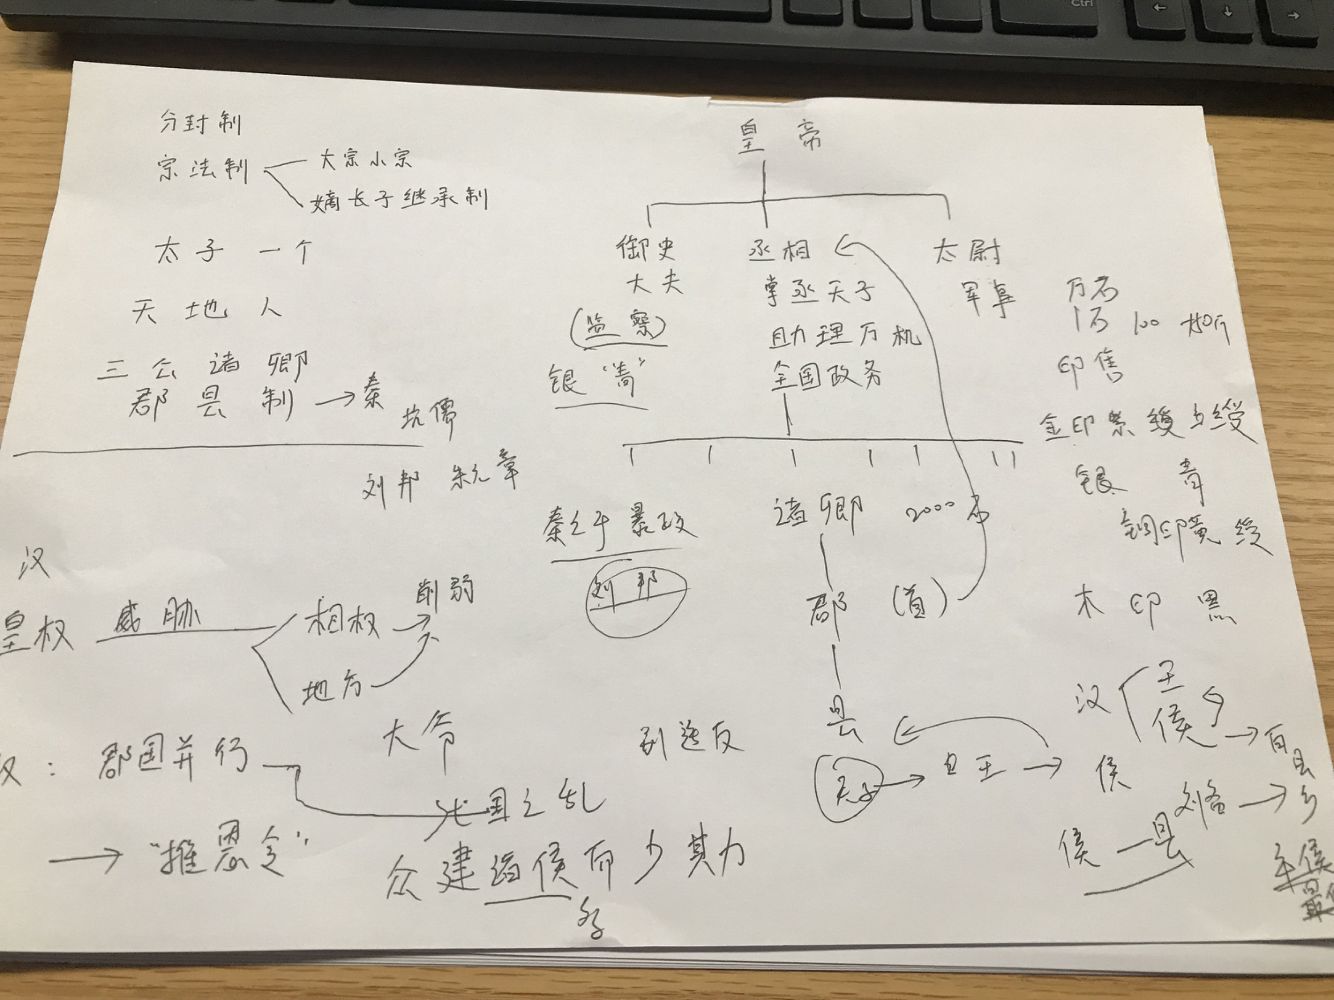 Ctrl
分封制
宗法制
大宗小宗
嫡长子继承制
太子 一个
天地人
三公诸卿
郡县制 → 秦
坑儒
刘邦 朱元章
汉
皇权 威胁
相权 → 削弱
地方
大爷
郡国并行
七国之乱
→ "推恩令"
众建诸侯而少其力
皇帝
御史
大夫
(监察)
银"青"
丞相
掌丞天子
助理万机
全国政务
太尉
军事
诸卿 2000石
秦之于暴政
刘邦
郡 (首)
县
天子 → 王 → 侯
万石
1石 100
印
金印紫绶
银 青
铜印黄绶
木印黑
汉 王
侯 → 百县
→ 乡
侯 — 县